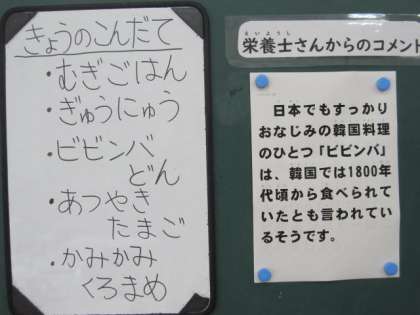 きょうのこんだて
・むぎごはん
・ぎゅうにゅう
・ビビンバ
どん
・あつやき
たまご
・かみかみ
くろまめ
えいようし
栄養士さんからのコメント
日本でもすっかり
おなじみの韓国料理
のひとつ「ビビンバ」
は、韓国では1800年
代頃から食べられて
いたとも言われてい
るそうです。